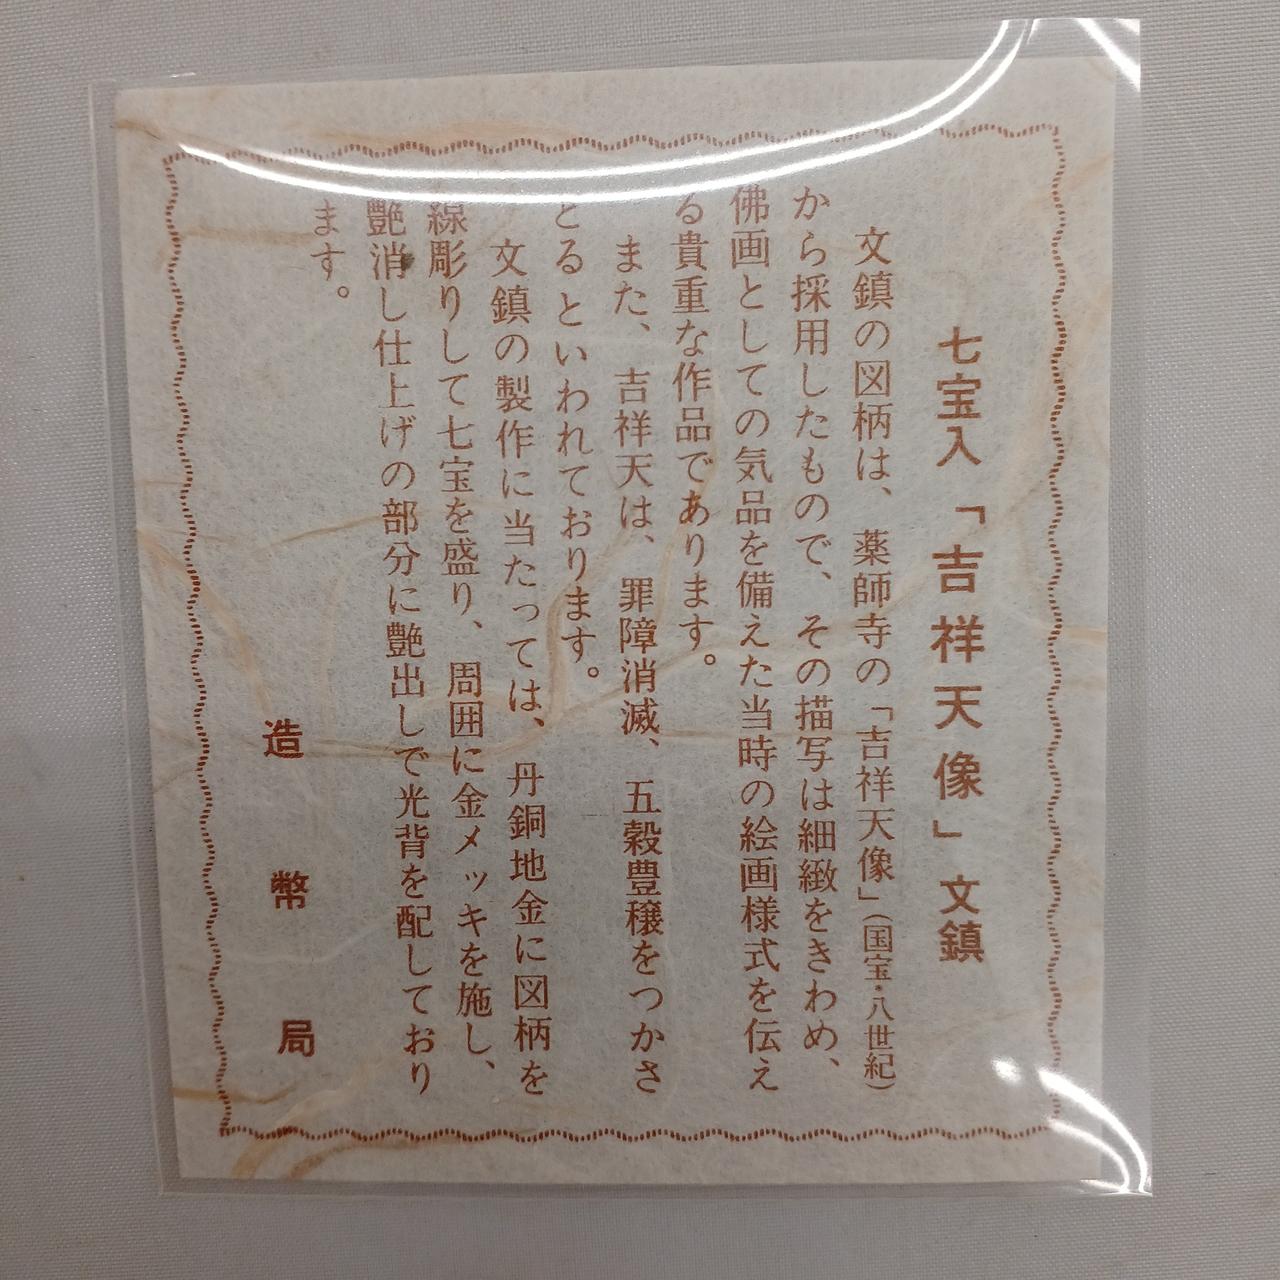 七宝入「吉祥天像」文鎮
文鎮の図柄は、薬師寺の「吉祥天像」(国宝・八世紀)
から採用したもので、その描写は細緻をきわめ、
佛画としての気品を備えた当時の絵画様式を伝え
る貴重な作品であります。
また、吉祥天は、罪障消滅、五穀豊穣をつかさ
どるといわれております。
文鎮の製作に当たっては、丹銅地金に図柄を
線彫りして七宝を盛り、周囲に金メッキを施し、
艶消し仕上げの部分に艶出しで光背を配しており
ます。
造幣局